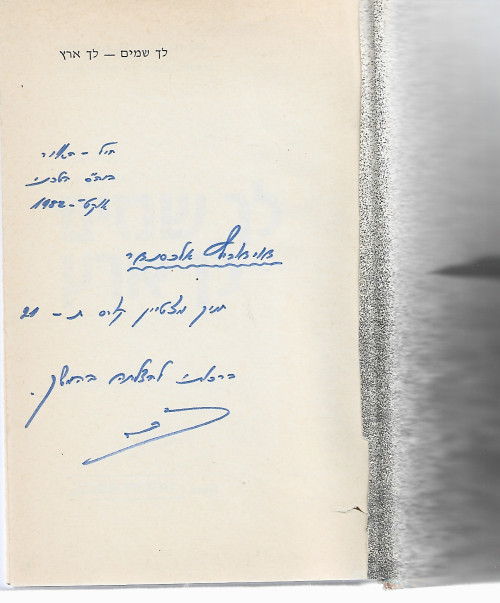 לך שמים — לך ארץ
חיל-האויר
ביה"ס הטכני
אוקט'-1982
אלכסנדר
חניך מצטיין קורס ת-21
ברכותי להצלחה בהמשך.